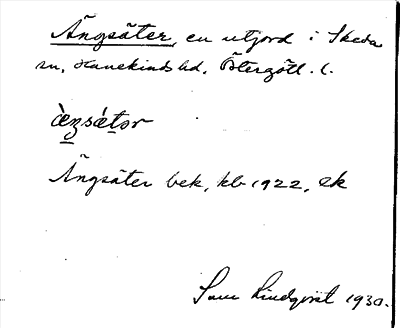 Ängsäter, en utjord i Skeda
sn, Hanekinds hd, Östergötl. l.
Ängsäter bek, kb 1922, ek
Sam Lindqvist 1930.